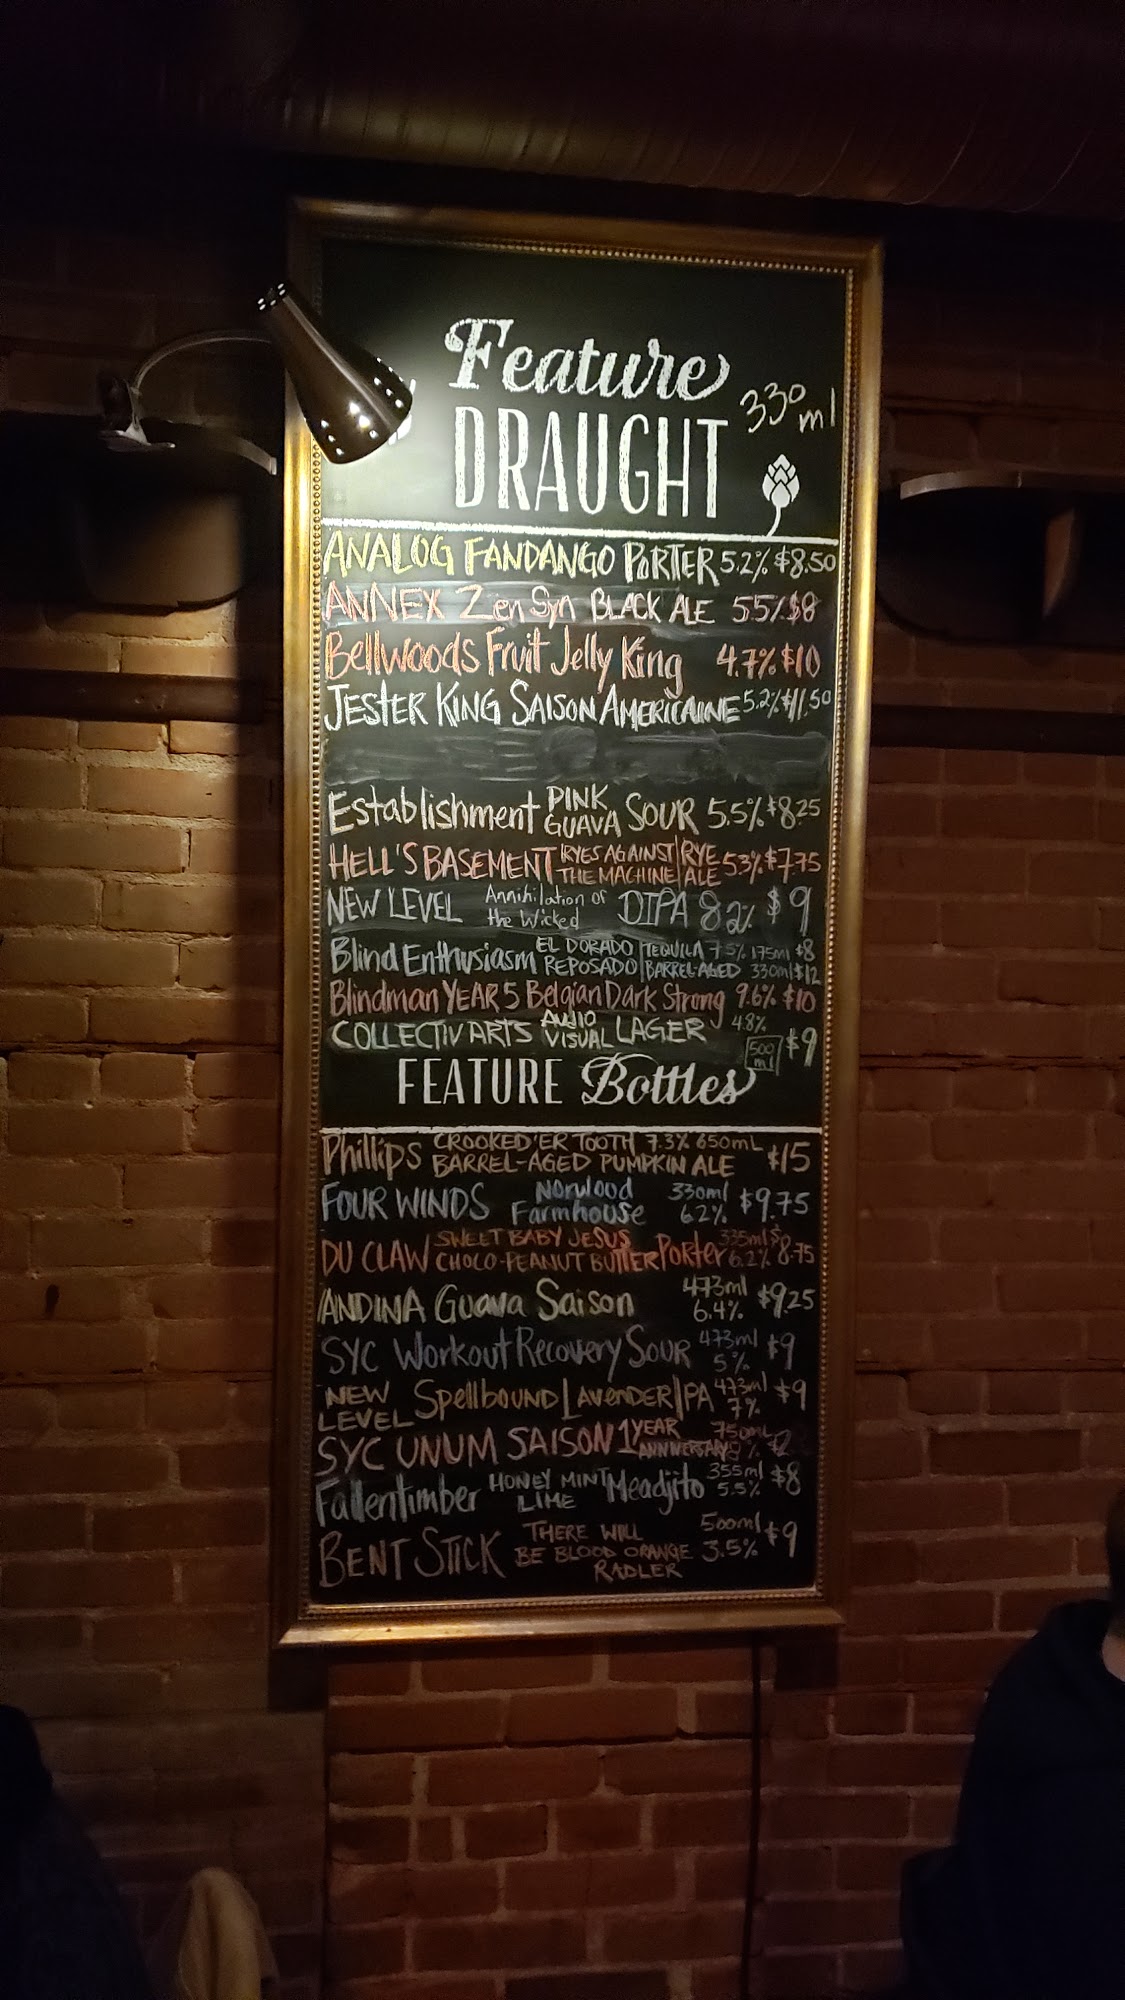 Feature
DRAUGHT 330 ml
ANALOG FANDANGO PORTER 5.2% $8.50
ANNEX Zen Syn BLACK ALE 5.5% $8
Bellwoods Fruit Jelly King 4.7% $10
JESTER KING SAISON AMERICAINE 5.2% $11.50
Establishment PINK GUAVA SOUR 5.5% $8.25
HELL'S BASEMENT RYES AGAINST THE MACHINE RYE ALE 5.3% $7.75
NEW LEVEL Annihilation of the Wicked DIPA 8.2% $9
Blind Enthusiasm EL DORADO REPOSADO TEQUILA BARREL-AGED 7.5% 175ml $8 330ml $12
Blindman YEAR 5 Belgian Dark Strong 9.6% $10
COLLECTIV ARTS AUDIO VISUAL LAGER 4.8% 500 ml $9
FEATURE Bottles
Phillips CROOKED'ER TOOTH BARREL-AGED PUMPKIN ALE 7.3% 650mL $15
FOUR WINDS Norwood Farmhouse 330ml 6.2% $9.75
DU CLAW SWEET BABY JESUS CHOCO-PEANUT BUTTER Porter 335ml 6.2% $8.75
ANDINA Guava Saison 473ml 6.4% $9.25
SYC Workout Recovery Sour 473ml 5% $9
NEW LEVEL Spellbound Lavender IPA 473ml 7% $9
SYC UNUM SAISON 1 YEAR ANNIVERSARY 750mL
Fallentimber HONEY MINT LIME Meadjito 355ml 5.5% $8
BENT STICK THERE WILL BE BLOOD ORANGE RADLER 500ml 3.5% $9